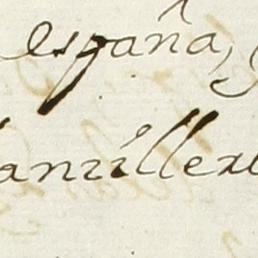 españa,
anzillere